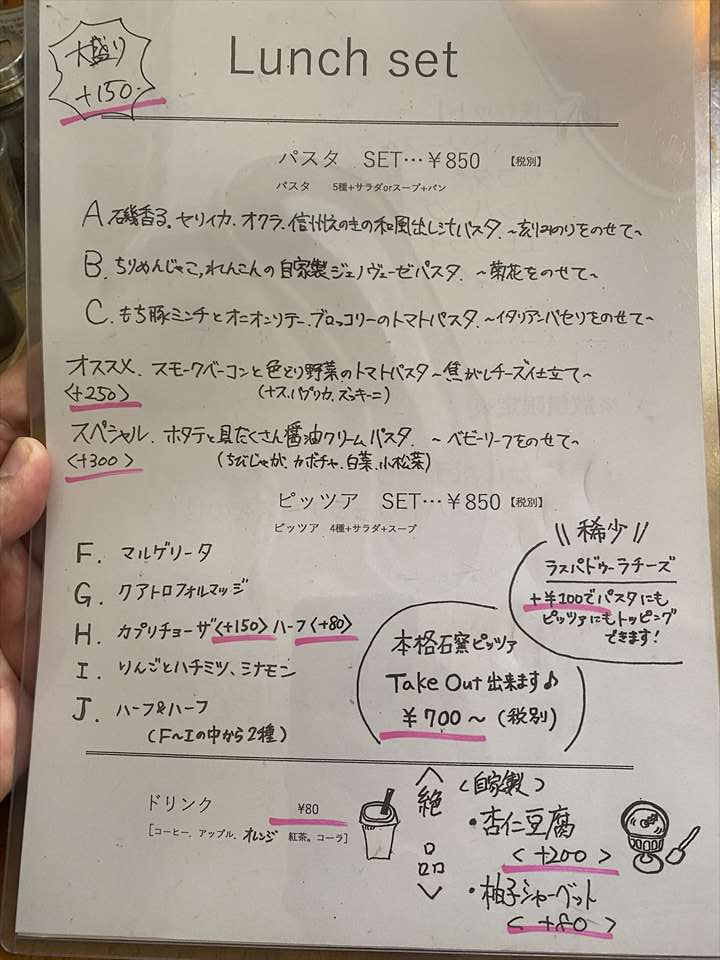 大盛り
+150.
Lunch set
パスタ SET…￥850 【税別】
パスタ 5種+サラダorスープ+パン
A 磯香る。セリイカ、オクラ、信州えのきの和風出し汁パスタ.～刻みのりをのせて～
B. ちりめんじゃこ,れんこんの自家製ジェノヴェーゼパスタ. ～菊花をのせて～
C. もち豚ミンチとオニオンソテー、ブロッコリーのトマトパスタ.～イタリアンパセリをのせて～
オススメ. スモークベーコンと色どり野菜のトマトパスタ～焦がしチーズ仕立て～
<+250> (ナス.パプリカ.ズッキーニ)
スペシャル. ホタテと具だくさん醤油クリームパスタ. ～ベビーリーフをのせて～
<+300> (ちびじゃが.カボチャ.白菜.小松菜)
ピッツア SET…￥850 【税別】
ピッツア 4種+サラダ+スープ
F. マルゲリータ
G. クアトロフォルマッジ
H. カプリチョーザ<+150>ハーフ<+80>
I. りんごとハチミツ、シナモン
J. ハーフ&ハーフ
(F～Iの中から2種)
\\ 稀少 //
ラスパドゥーラチーズ
+¥100でパスタにも
ピッツアにもトッピング
できます!
本格石窯ピッツア
Take Out 出来ます♪
¥700～ (税別)
ドリンク ¥80
[コーヒー、アップル、オレンジ 紅茶。コーラ]
<絶品>
(自家製)
・杏仁豆腐
<+200>
・柚子シャーベット
<+80>